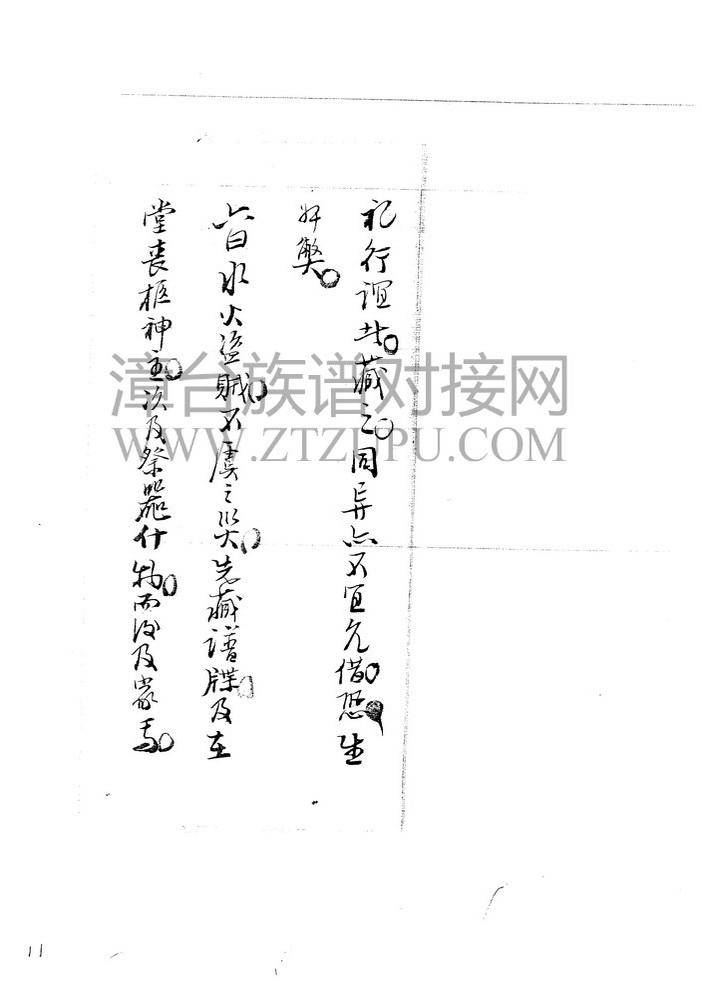 礼行誼者。藏之。因异亦不宜允借。恐生
奸弊。
六曰水火盗贼。不虞之災。先藏譜牒。及在
堂丧柩神主。次及祭器什物。而後及家焉。
漳台族谱对接网
WWW.ZTZUPU.COM
11